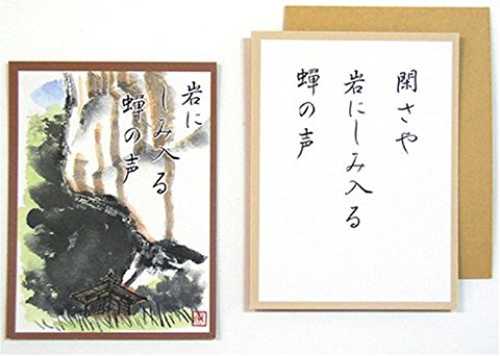 岩に
しみ入る
蝉の声
閑さや
岩にしみ入る
蝉の声